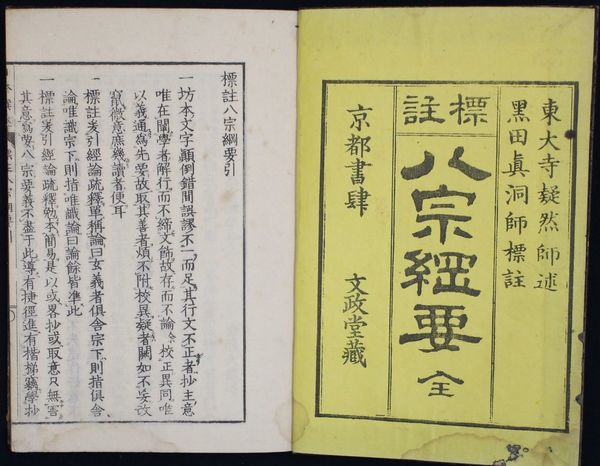 東大寺凝然師述
黑田眞洞師標註
標註
八宗綱要 全
京都書肆
文政堂藏
標註八宗綱要引
一坊本文字顚倒錯間誤謬不一而足其行文不正者抄主意
唯在闡學者解行而不締文飾故存而不論今校正異同唯
以義通爲先要故取其善者煩不附校異疑者闕如不妄改
竄微意庶幾讀者便耳
一標註爰引經論疏釋單稱論曰玄義者俱舍宗下則指俱舍
論唯識宗下則指唯識論曰論餘皆準此
一標註爰引經論疏釋勉本簡易是以或畧抄或取意只無害
其意焉要八宗要義不盡于此導有捷徑進有楷梯竊學抄